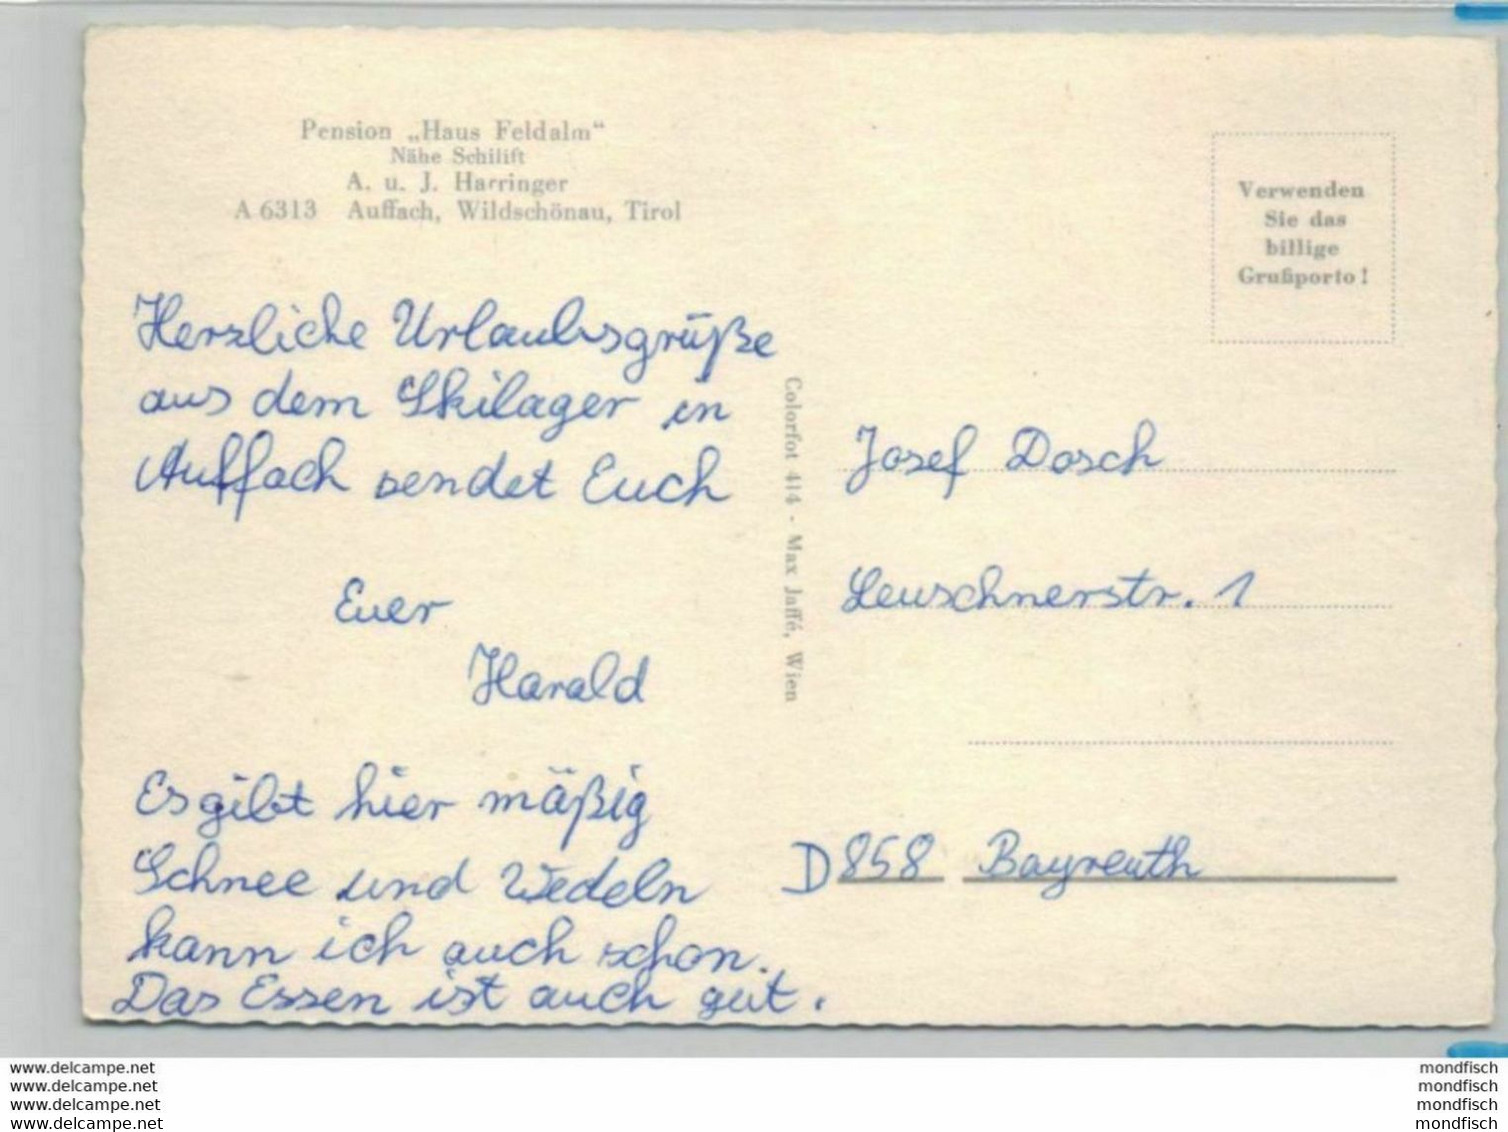 Pension „Haus Feldalm“
Nähe Schilift
A. u. J. Harringer
A 6313 Auffach, Wildschönau, Tirol
Verwenden
Sie das
billige
Grußporto!
Herzliche Urlaubsgrüße
aus dem Skilager in
Auffach sendet Euch
Euer
Harald
Es gibt hier mäßig
Schnee und Wedeln
kann ich auch schon.
Das Essen ist auch gut.
Colorfot 414 - Max Jaffé, Wien
Josef Dosch
Leuschnerstr. 1
D 858 Bayreuth
www.delcampe.net
www.delcampe.net
www.delcampe.net
www.delcampe.net
mondfisch
mondfisch
mondfisch
mondfisch